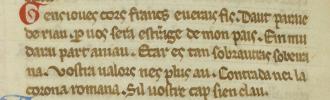 Gens ioues cors francs e uerais fis. Daut parage
de riau. p uos sera estrāge de mon pais. E in mu
darai part aniau. Etar es tan sobrairas sobeira
na. Vostra ualors nez plus au. Contrada nei la
corona romana. Sil uostre cap sien clau.